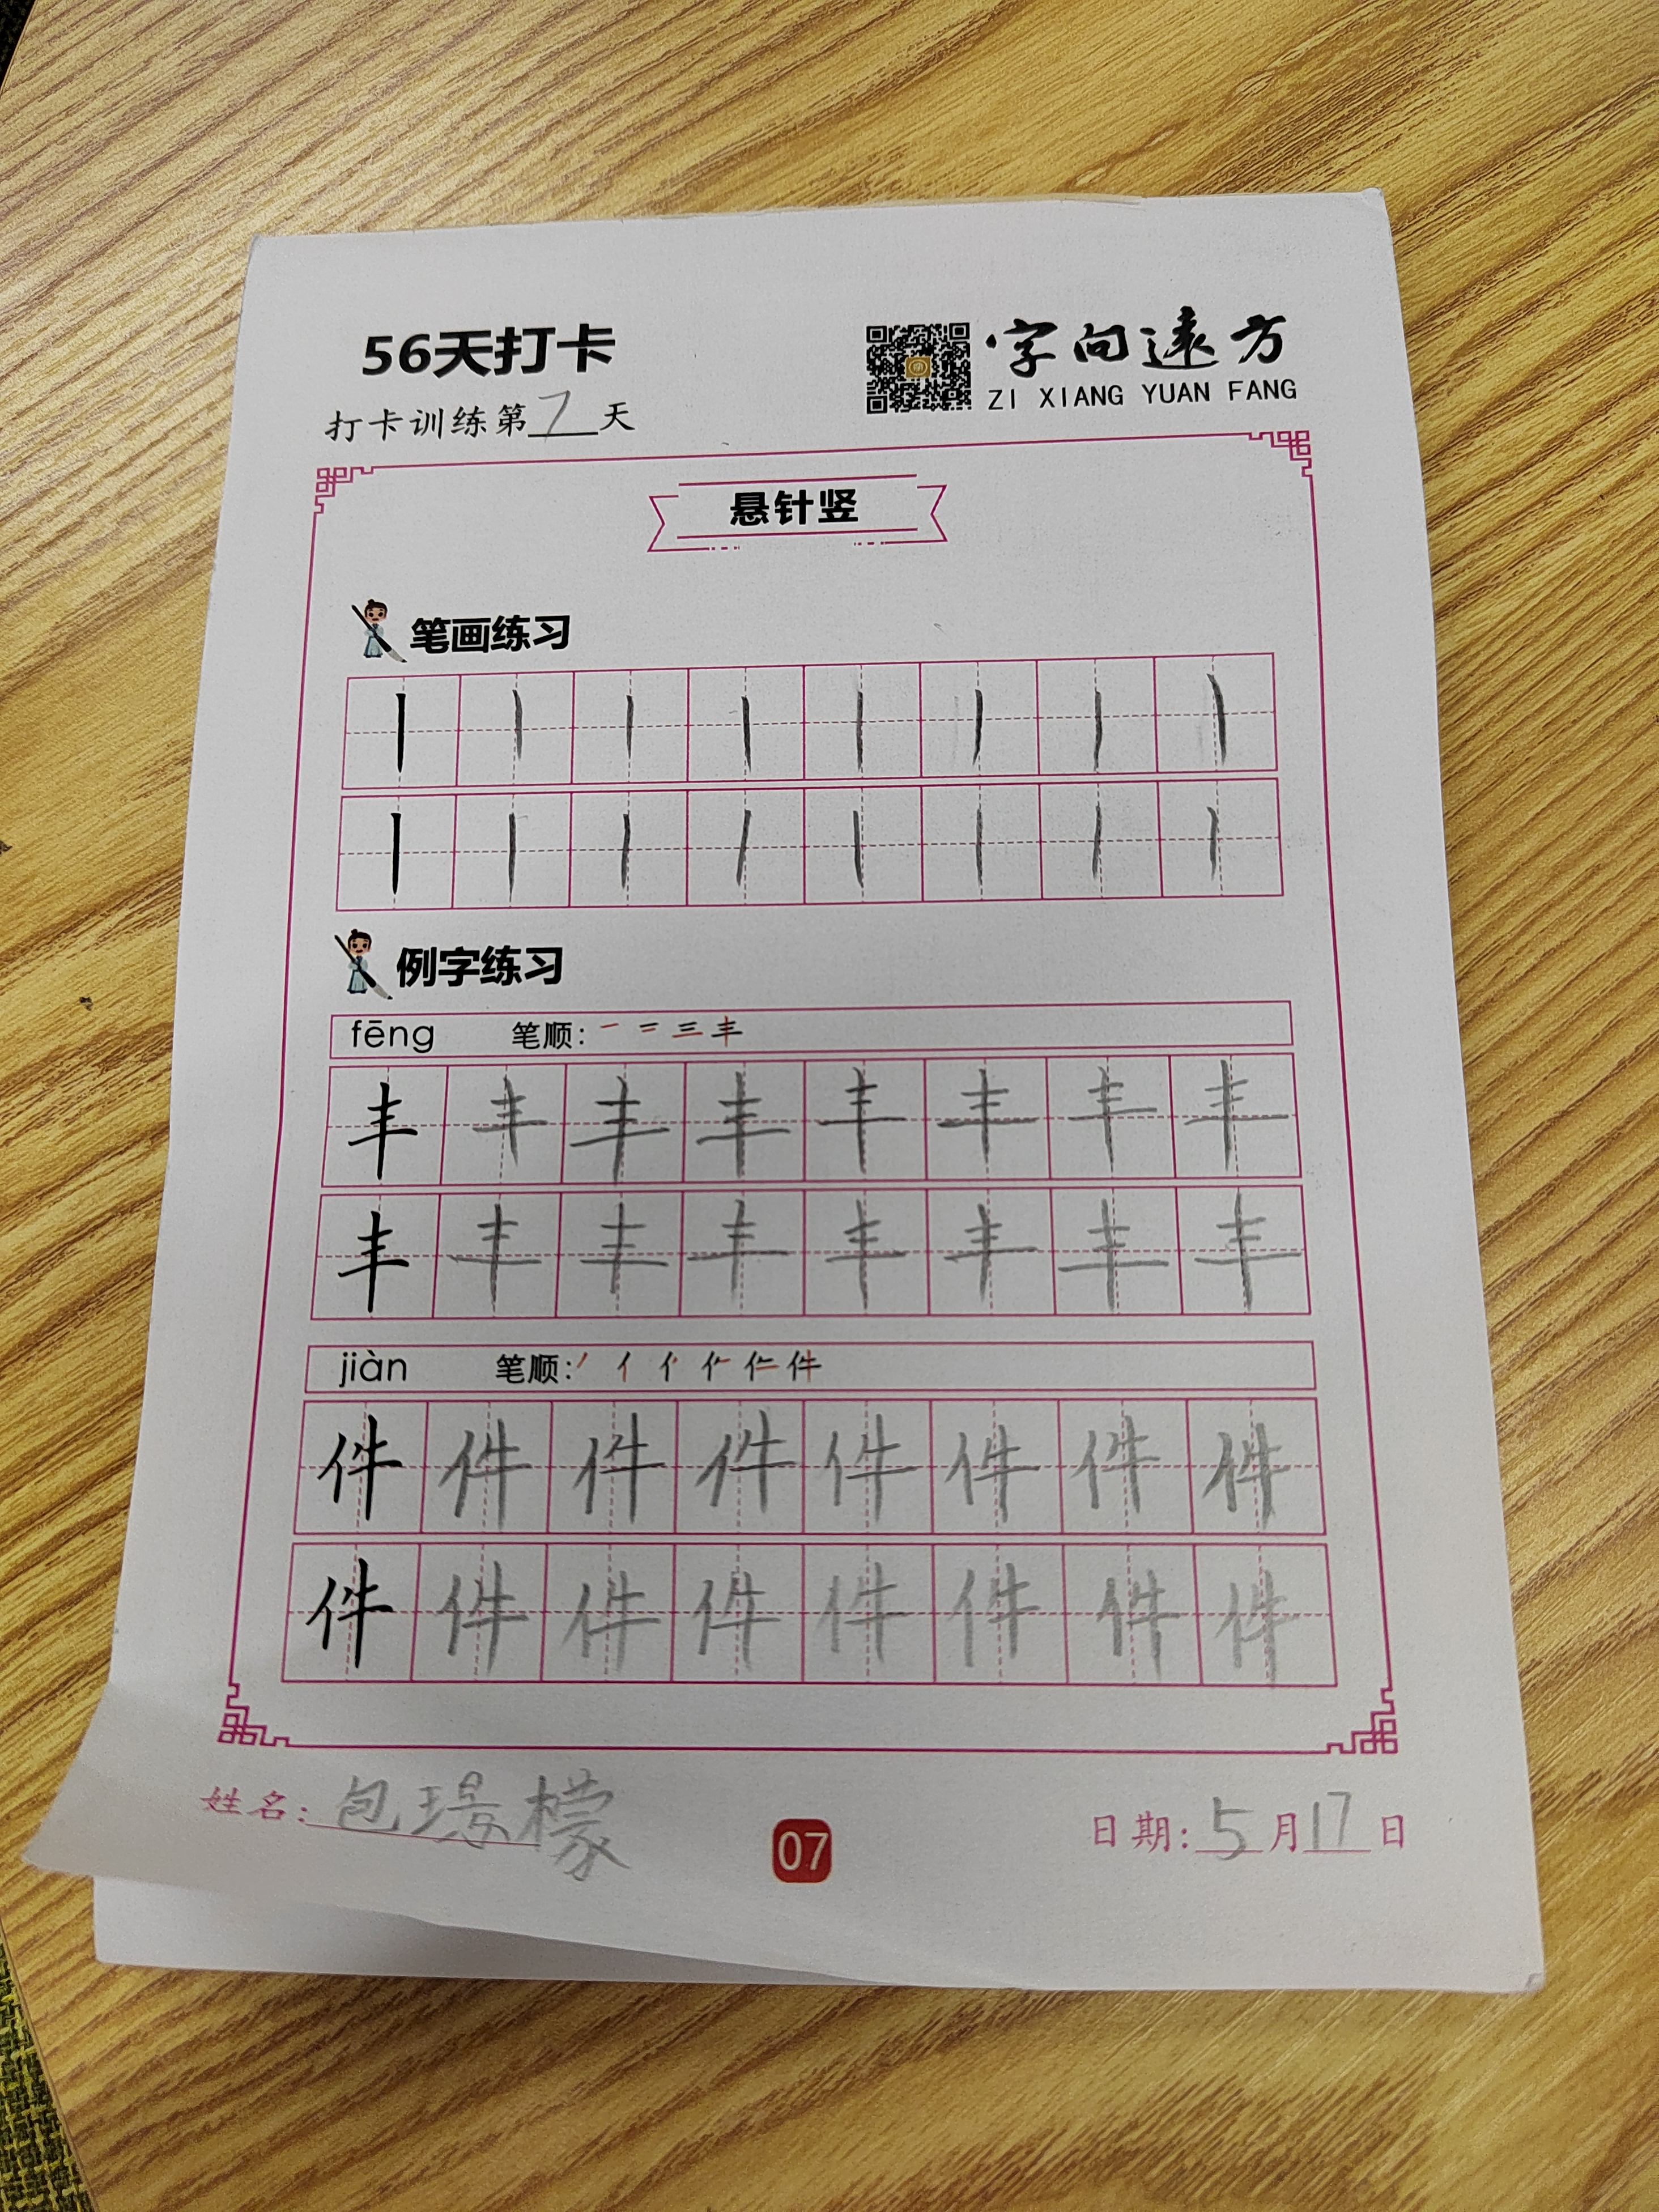 56天打卡
字向远方
ZI XIANG YUAN FANG
打卡训练第7天
悬针竖
笔画练习
例字练习
fēng 笔顺: 一 二 三 丰
丰 丰 丰 丰 丰 丰 丰 丰
丰 丰 丰 丰 丰 丰 丰 丰
jiàn 笔顺: 件
件 件 件 件 件 件 件 件
件 件 件 件 件 件 件 件
姓名: 包璟檬
07
日期: 5月17日